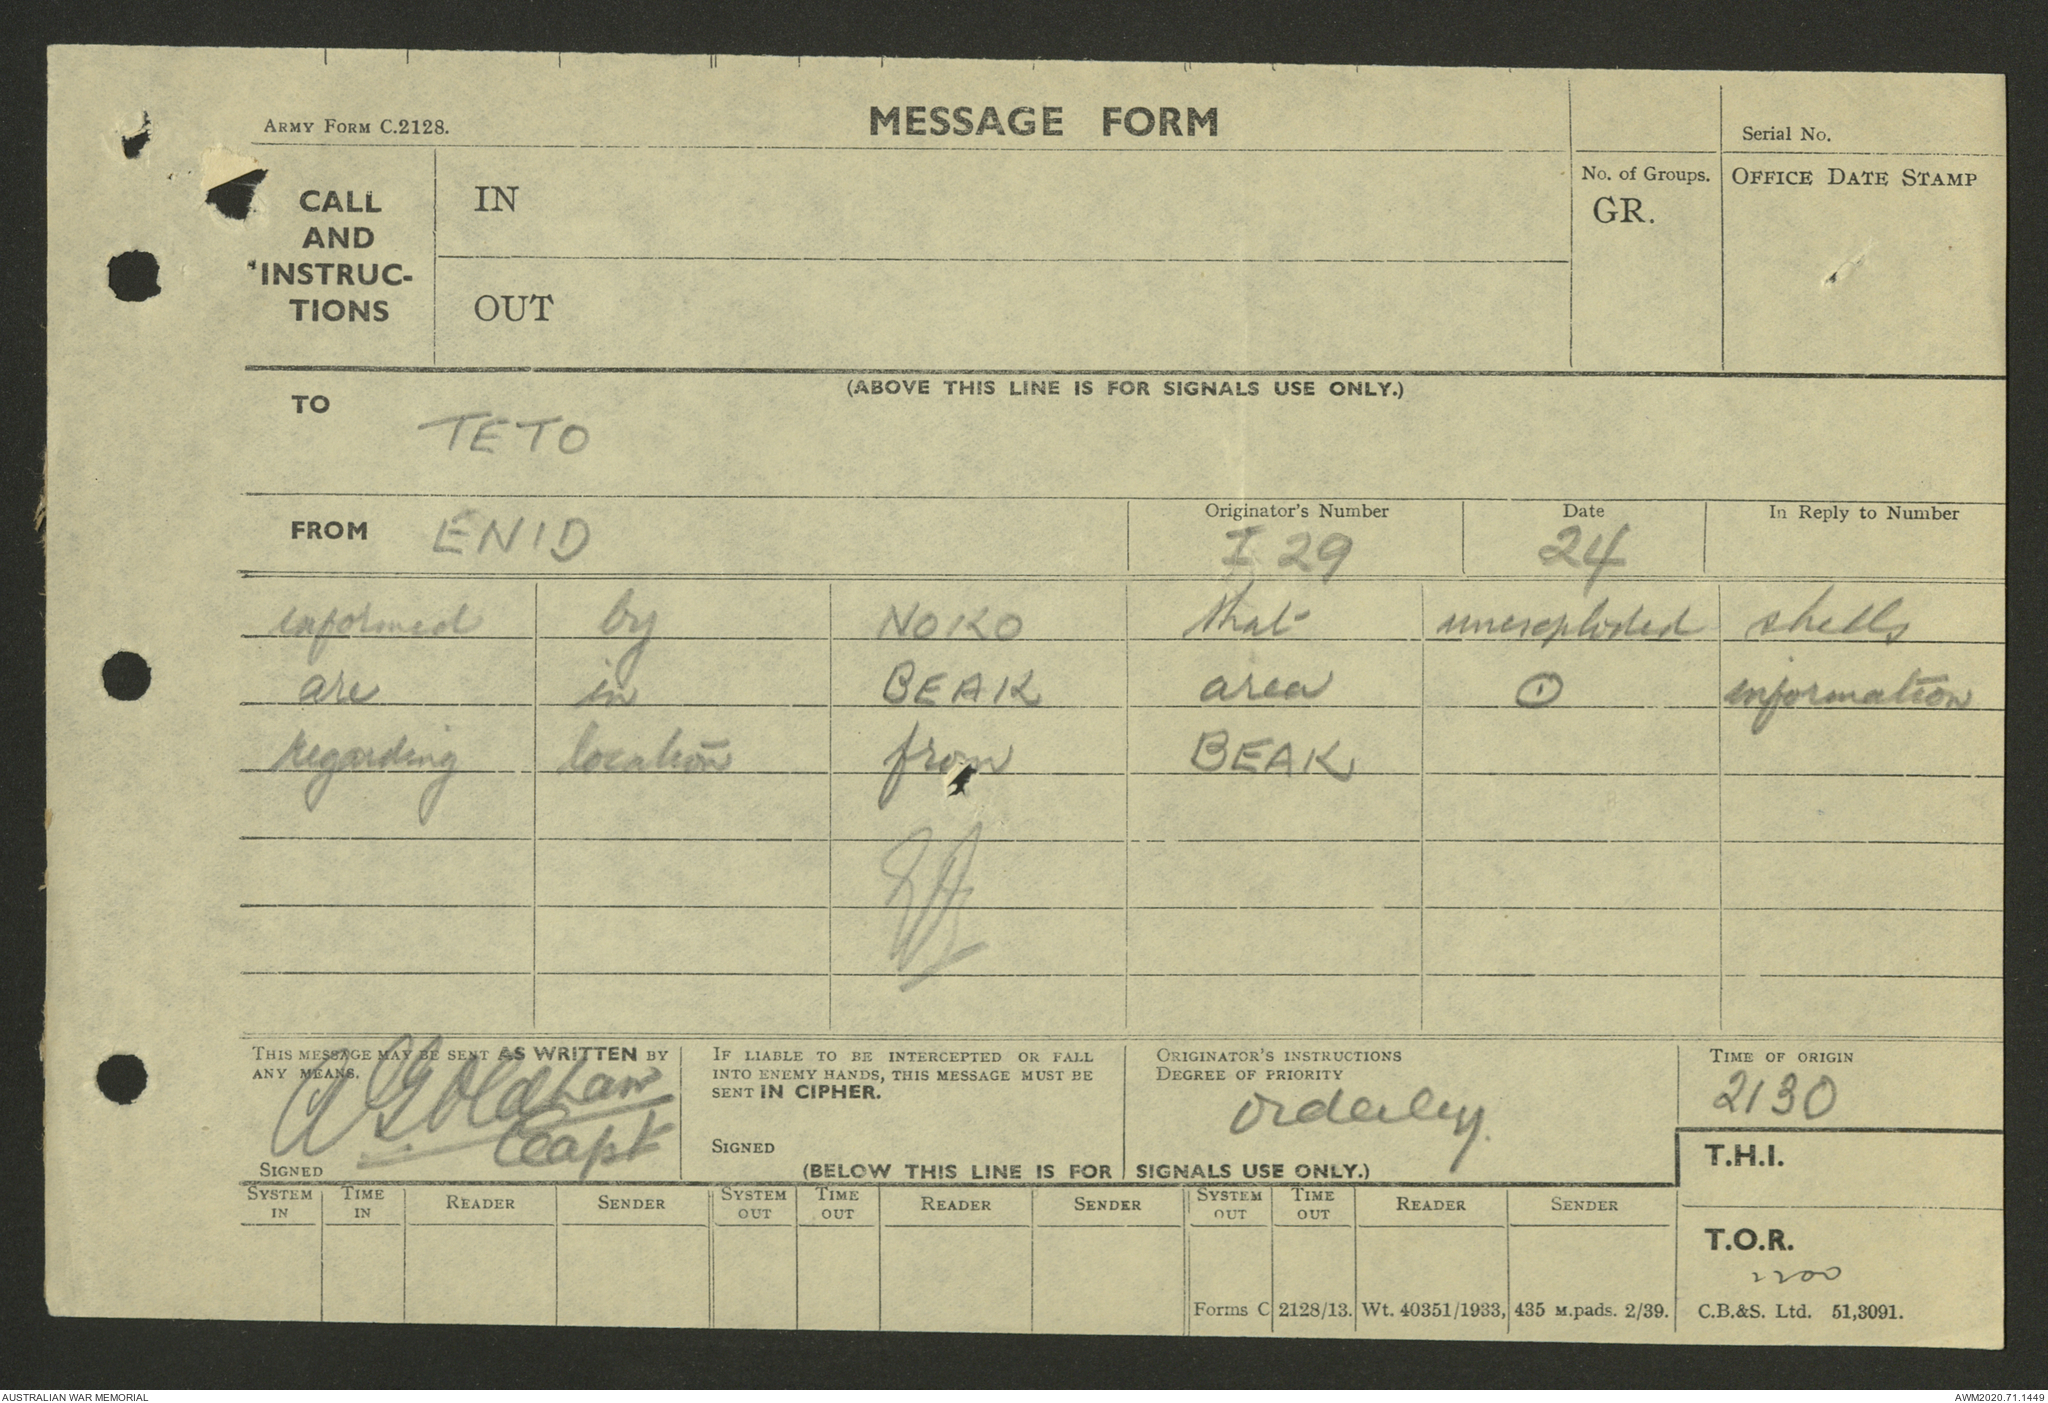 ARMY FORM C.2128.
MESSAGE FORM
Serial No.
CALL AND INSTRUC-TIONS
IN
OUT
No. of Groups.
GR.
OFFICE DATE STAMP
(ABOVE THIS LINE IS FOR SIGNALS USE ONLY.)
TO
TETO
FROM ENID
Originator's Number
I 29
Date
24
In Reply to Number
informed by NOKO that unexploded shells
are in BEAK area ⊙ information
regarding location from BEAK
THIS MESSAGE MAY BE SENT AS WRITTEN BY
ANY MEANS.
Capt
SIGNED
IF LIABLE TO BE INTERCEPTED OR FALL
INTO ENEMY HANDS, THIS MESSAGE MUST BE
SENT IN CIPHER.
SIGNED
ORIGINATOR'S INSTRUCTIONS
DEGREE OF PRIORITY
orderley.
TIME OF ORIGIN
2130
(BELOW THIS LINE IS FOR SIGNALS USE ONLY.)
T.H.I.
SYSTEM IN TIME IN READER SENDER SYSTEM OUT TIME OUT READER SENDER SYSTEM OUT TIME OUT READER SENDER
T.O.R.
2200
Forms C 2128/13. Wt. 40351/1933, 435 M.pads. 2/39. C.B.&S. Ltd. 51,3091.
AUSTRALIAN WAR MEMORIAL
AWM2020.71.1449